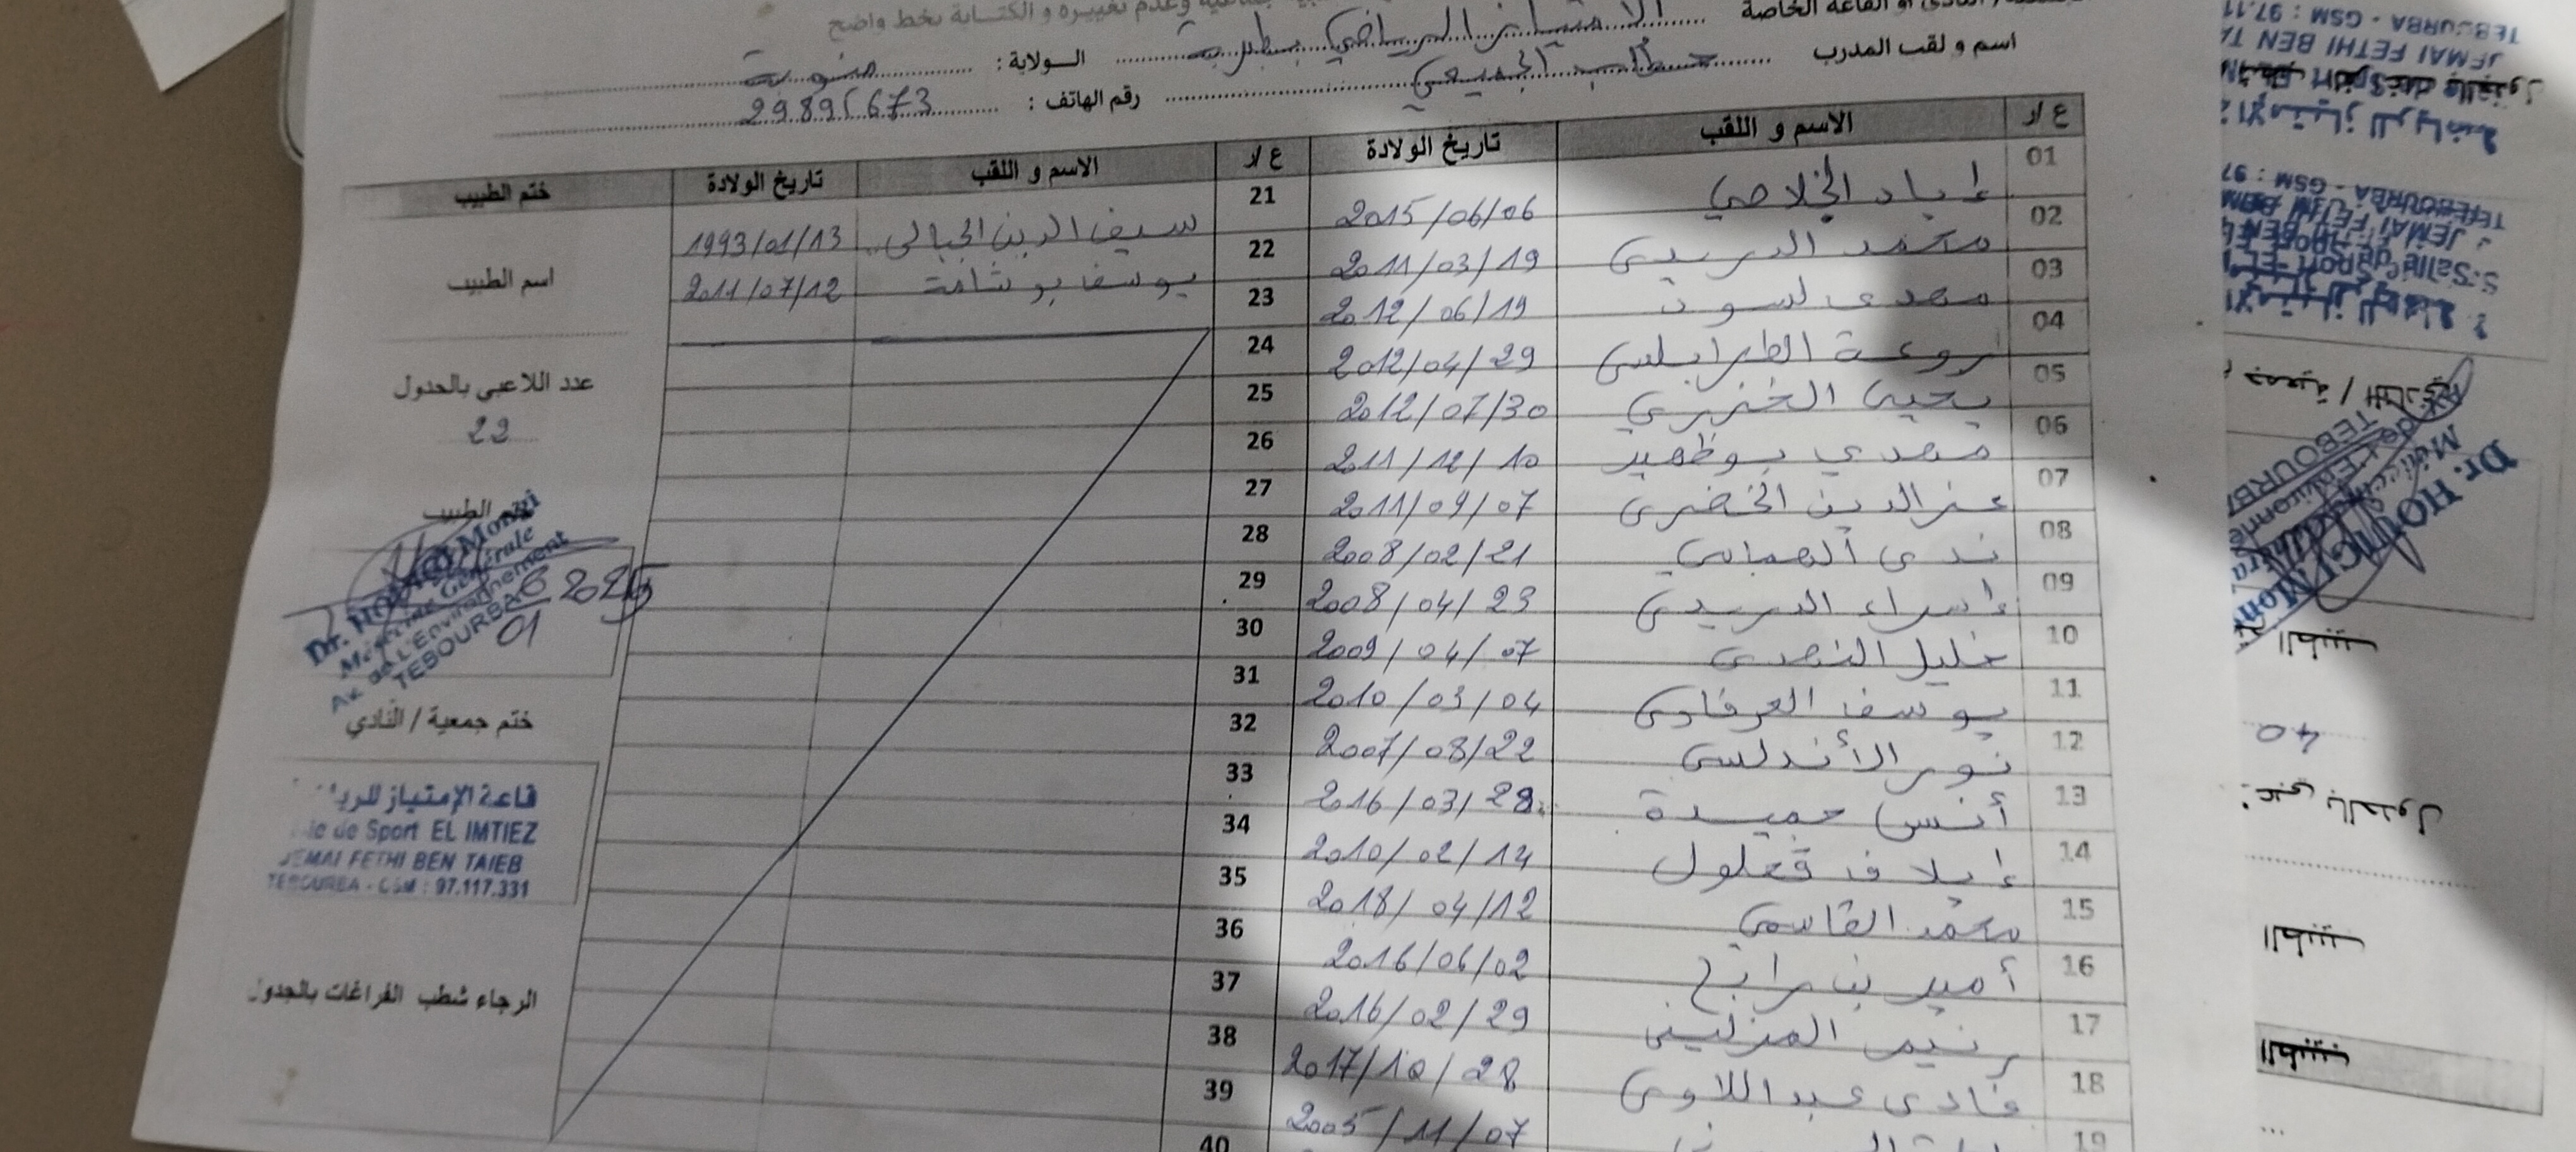 وعدم تغييره و الكتابة بخط واضح
أو القاعة الخاصة الامتياز الرياضي بطبربة الولاية : منوبة
اسم و لقب المدرب خطاب الجميعي رقم الهاتف : 29895673
ع/ر الاسم و اللقب تاريخ الولادة ع/ر الاسم و اللقب تاريخ الولادة ختم الطبيب
01 إياد الخلاصي 2015/06/06
02 محمد الدريدي 2011/03/19
03 مهدي لسود 2012/06/19
04 روعة الطرابلسي 2012/04/29
05 يحيى الخضيري 2012/07/30
06 مهدي بوظهير 2011/12/10
07 عز الدين الخضري 2011/09/07
08 ندى الهمامي 2008/02/21
09 إسراء الدريدي 2008/04/23
10 خليل النهدي 2009/04/07
11 يوسف العرفاوي 2010/03/04
12 نور الأندلسي 2007/08/22
13 أنس حميدة 2016/03/28
14 إيلاف قعلول 2010/02/14
15 محمد القاسمي 2018/04/12
16 أمير بن رابح 2016/06/02
17 رنيم المزليني 2016/02/29
18 فادي عبداللاوي 2017/10/28
19 2005/11/07
21 سيف الدين الجبالي 1993/01/13
22 يوسف بوشامة 2011/07/12
23
24
25
26
27
28
29
30
31
32
33
34
35
36
37
38
39
40
اسم الطبيب
عدد اللاعبي بالجدول
22
ختم الطبيب
Dr. HOUAGI Mongi
Médecine Générale
Av. de L'Environnement
TEBOURBA
6
01
2025
ختم جمعية / النادي
قاعة الإمتياز للريا
de Sport EL IMTIEZ
JEMAI FETHI BEN TAIEB
TEBOURBA - GSM : 97.117.331
الرجاء شطب الفراغات بالجدول
TEBOURBA - GSM : 97.11
JEMAI FETHI BEN TA
TEBOURBA - GSM : 97
40